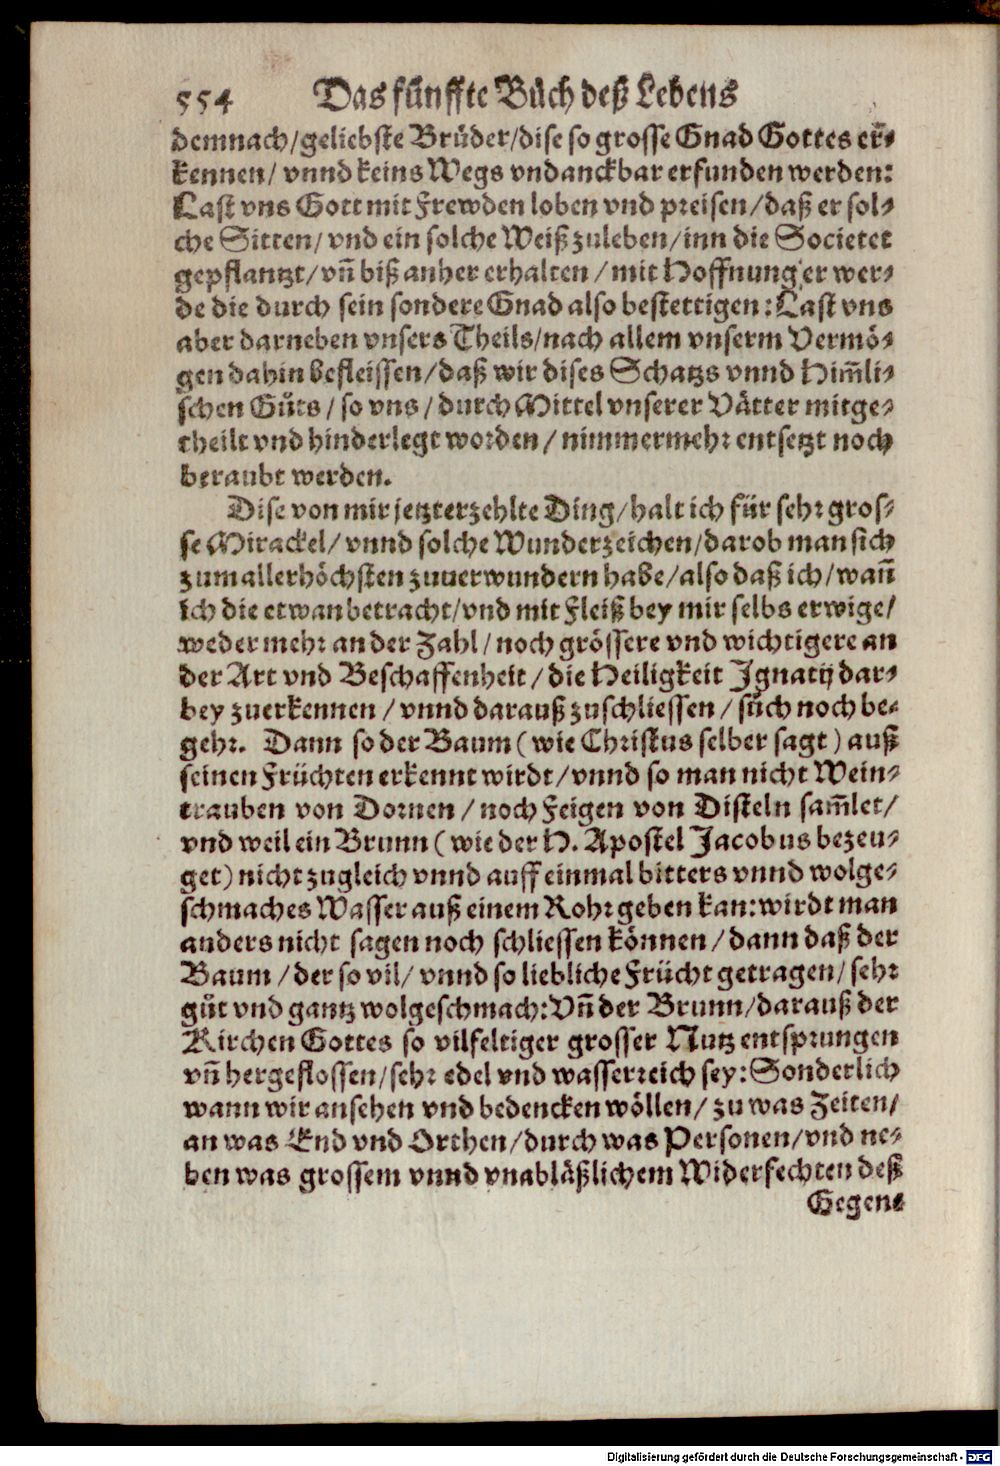 554 Das fünffte Bůch deß Lebens
demnach/geliebste Brüder/dise so grosse Gnad Gottes er-
kennen/ vnnd keins Wegs vndanckbar erfunden werden:
Last vns Gott mit Frewden loben vnd preisen/daß er sol-
che Sitten/ vnd ein solche Weiß zuleben/inn die Societet
gepflantzt/vñ biß anher erhalten/mit Hoffnung er wer-
de die durch sein sondere Gnad also bestettigen: Last vns
aber darneben vnsers Theils/nach allem vnserm Vermö-
gen dahin befleissen/daß wir dises Schatzs vnnd Him̃li-
schen Gůts/ so vns/ durch Mittel vnserer Vätter mitge-
theilt vnd hinderlegt worden/ nimmermehr entsetzt noch
beraubt werden.
Dise von mir jetzterzehlte Ding/halt ich für sehr gros-
se Mirackel/ vnnd solche Wunderzeichen/darob man sich
zum allerhöchsten zuuerwundern habe/also daß ich/wañ
ich die etwan betracht/vnd mit Fleiß bey mir selbs erwige/
weder mehr an der Zahl/noch grössere vnd wichtigere an
der Art vnd Beschaffenheit/die Heiligkeit Ignatij dar-
bey zuerkennen/ vnnd darauß zuschliessen/ sůch noch be-
gehr. Dann so der Baum (wie Christus selber sagt) auß
seinen Früchten erkennt wirdt/vnnd so man nicht Wein-
trauben von Dornen/ noch Feigen von Disteln sam̃let/
vnd weil ein Brunn (wie der H. Apostel Jacobus bezeu-
get) nicht zugleich vnnd auff einmal bitters vnnd wolge-
schmaches Wasser auß einem Rohr geben kan: wirdt man
anders nicht sagen noch schliessen können/dann daß der
Baum/der so vil/ vnnd so liebliche Frücht getragen/sehr
gůt vnd gantz wolgeschmach: Vñ der Brunn/darauß der
Kirchen Gottes so vilfeltiger grosser Nutz entsprungen
vñ hergeflossen/sehr edel vnd wasserreich sey: Sonderlich
wann wir ansehen vnd bedencken wöllen/ zu was Zeiten/
an was End vnd Orthen/durch was Personen/vnd ne-
ben was grossem vnnd vnabläßlichem Widerfechten deß
Gegen-
Digitalisierung gefördert durch die Deutsche Forschungsgemeinschaft - DFG